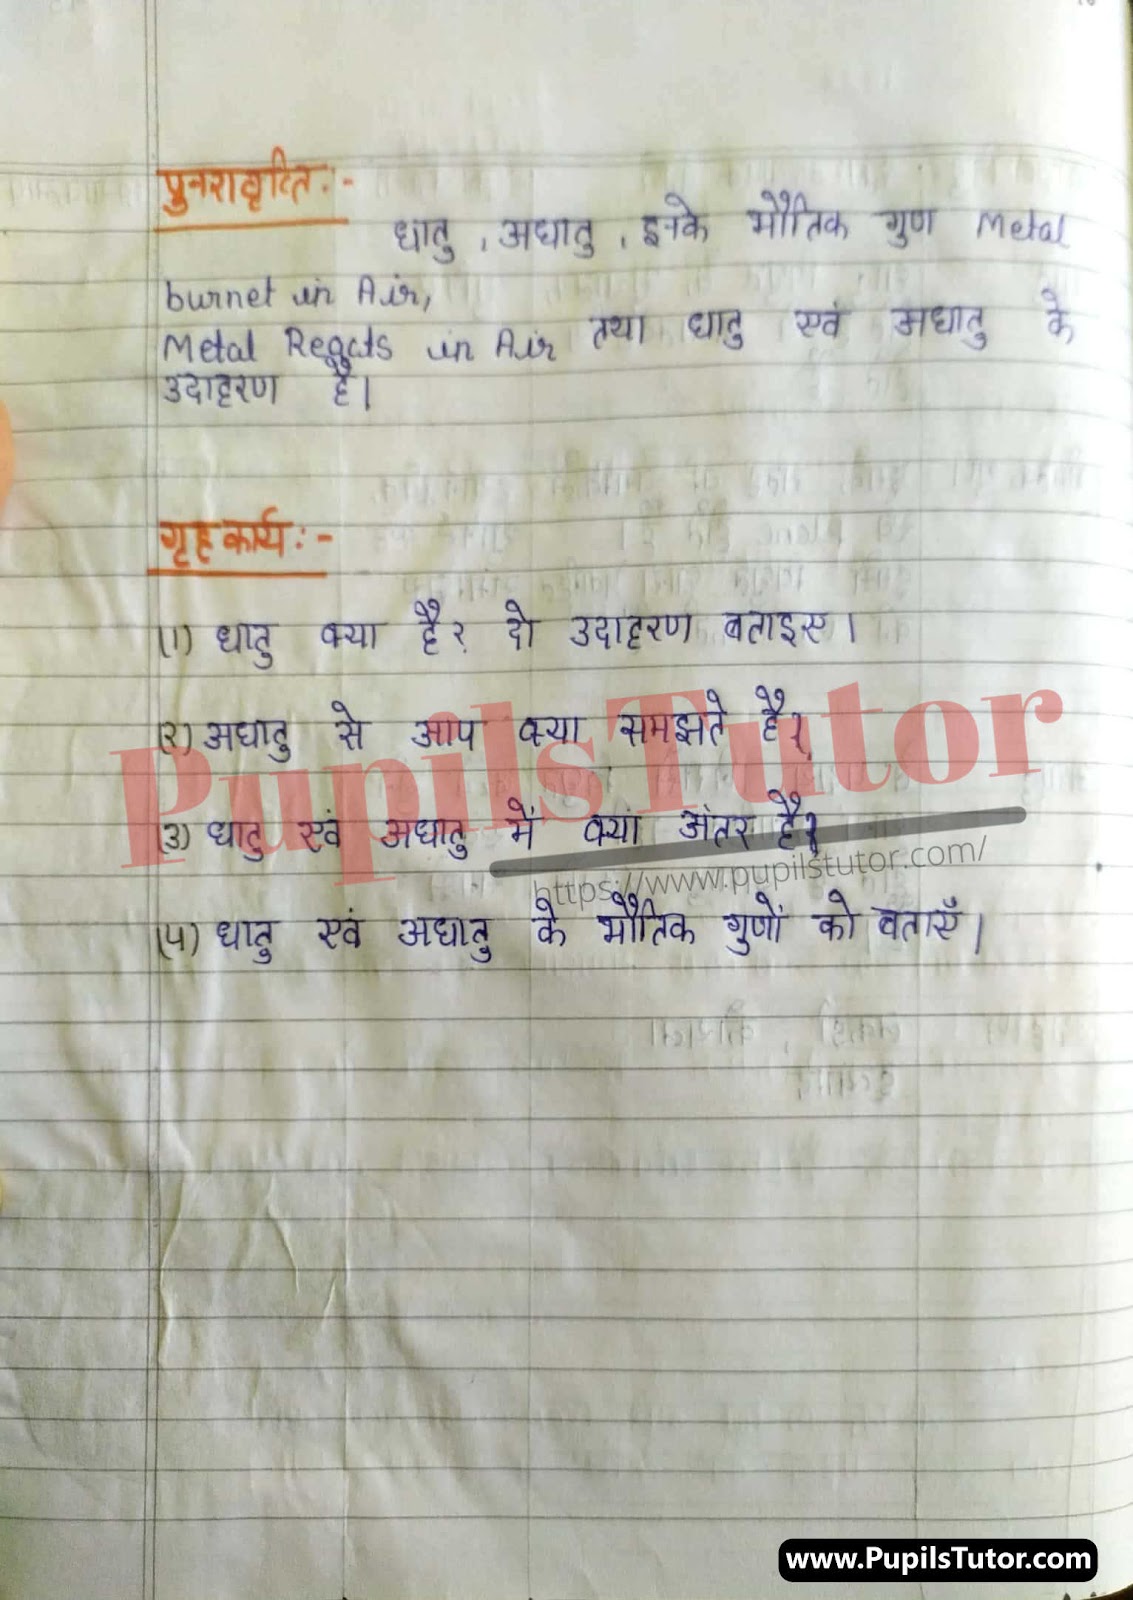 पुनरावृत्ति :-
धातु , अधातु , इनके भौतिक गुण Metal
burnet in Air,
Metal Reacts in Air तथा धातु एवं अधातु के
उदाहरण है।
गृहकार्य :-
(1) धातु क्या है? दो उदाहरण बताइए।
(२) अधातु से आप क्या समझते है?
(3) धातु एवं अधातु में क्या अंतर है?
(५) धातु एवं अधातु के भौतिक गुणों को बताएँ।
PupilsTutor
https://www.pupilstutor.com/
www.PupilsTutor.com